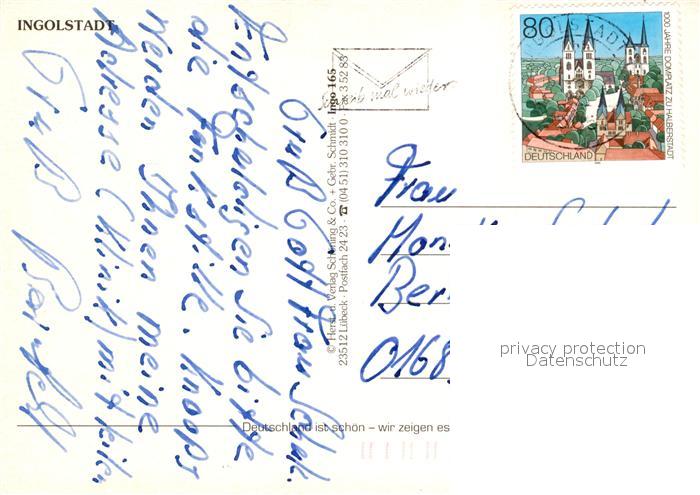 INGOLSTADT
Grüß Gott Frau Schul.
Entschuldigen Sie bitte
die Funkstille. Knoops
werden Ihnen meine
Adresse (Klinik) mitteilen
Gruß
© Herst. u. Verlag Schöning & Co. + Gebr. Schmidt · Ingo 165
23512 Lübeck · Postfach 24 23 · ☎ (04 51) 310 310 0 · Fax 3 52 83
mal wieder
80
1000 JAHRE DOMPLATZ ZU HALBERSTADT
DEUTSCHLAND
Frau
Mon
Ber
0168
privacy protection
Datenschutz
Deutschland ist schön – wir zeigen es